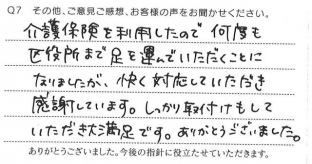 Q7 その他、ご意見ご感想、お客様の声をお聞かせください。
介護保険を利用したので 何度も
区役所まで足を運んでいただくことに
なりましたが、快く対応していただき
感謝しています。しっかり取付けもして
いただき大満足です。ありがとうございました。
ありがとうございました。今後の指針に役立たせていただきます。